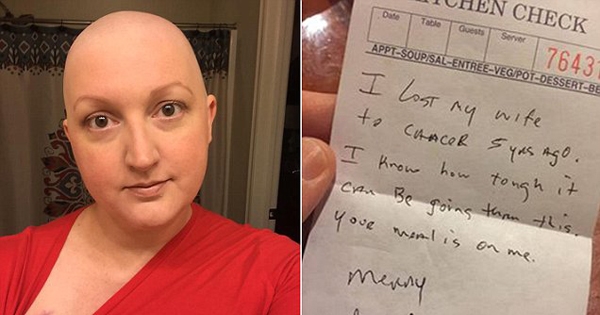 ITCHEN CHECK
Date Table Guests Server 7643
APPT-SOUP/SAL-ENTREE-VEG/POT-DESSERT-BE
I Lost my wife
to CANCER 5 yrs AGO.
I know how tough it
can Be going thru this.
your meal is on me.
Merry